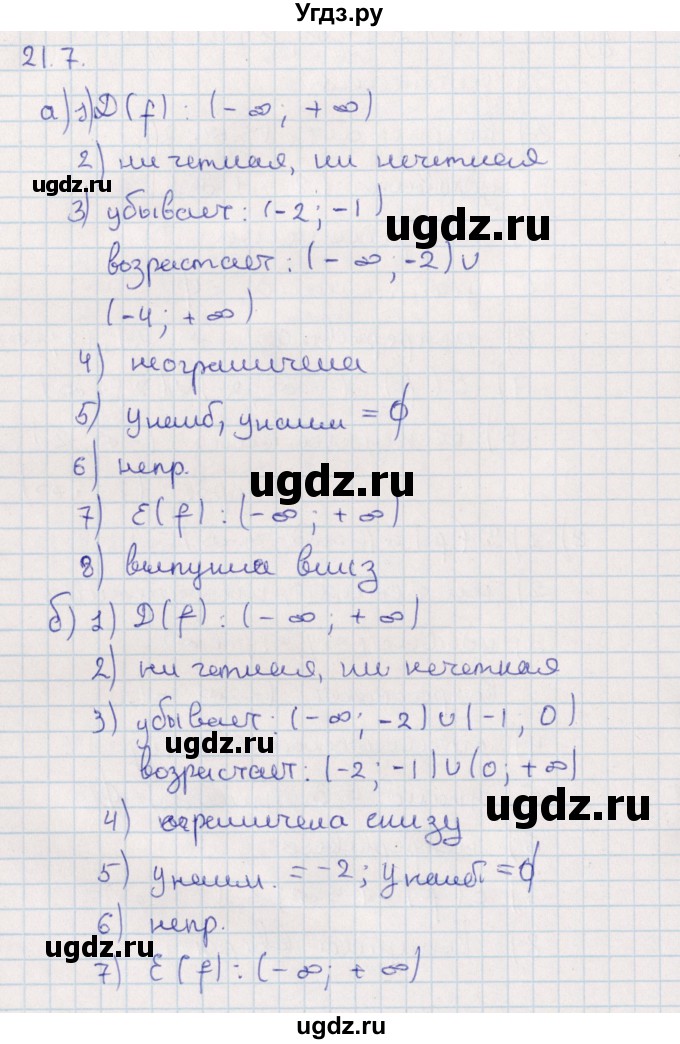 Угдз.ру
21.7.
а) 1) D(f) : (-∞; +∞)
2) ни четная, ни нечетная
ugdz.ru
3) убывает: (-2; -1)
ugdz.ru
возрастает: (-∞; -2) ∪
(-4; +∞)
4) неограничена
5) yнаиб, yнаим = ∅
6) непр.
ugdz.ru
7) E(f) : (-∞; +∞)
8) выпукла вниз
б) 1) D(f) : (-∞; +∞)
2) ни четная, ни нечетная
3) убывает: (-∞; -2) ∪ (-1, 0)
ugdz.ru
возрастает: (-2; -1) ∪ (0; +∞)
ugdz.ru
4) ограничена снизу
5) yнаим. = -2; yнаиб. = ∅
6) непр.
ugdz.ru
7) E(f) : (-∞; +∞)
ugdz.ru